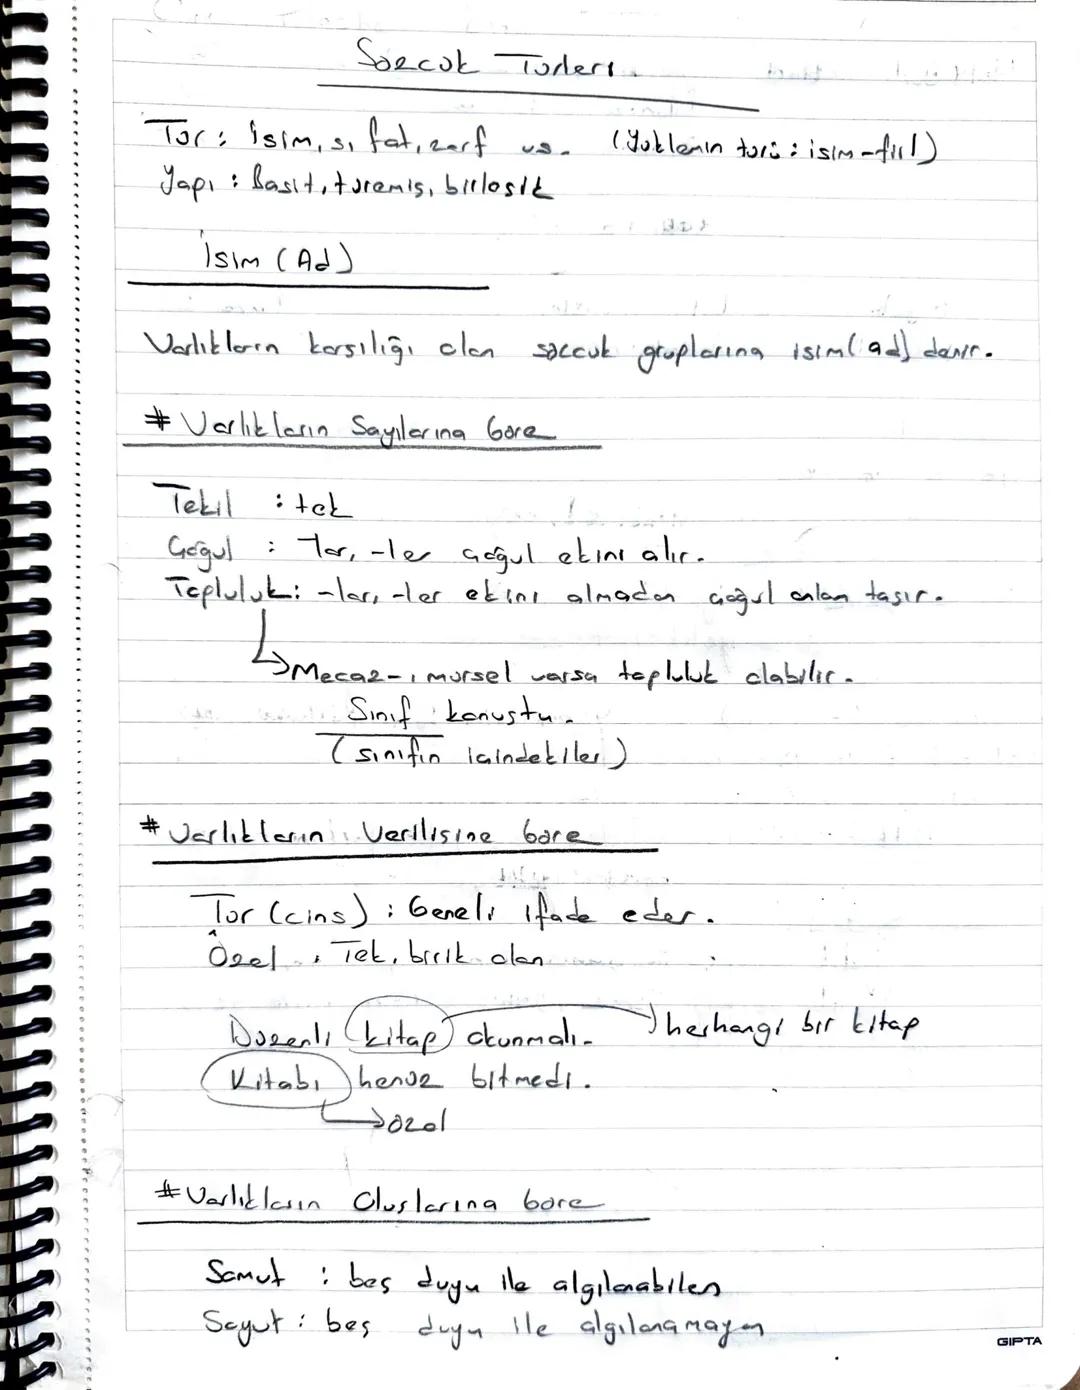 Sözcük Türleri
Tür : İsim, sıfat, zarf vs. (Yüklemin türü : isim-fiil)
Yapı : Basit, türemiş, birleşik
İsim (Ad)
Varlıkların karşılığı olan sözcük gruplarına isim(ad) denir.
# Varlıkların Sayılarına Göre
Tekil : tek
Çoğul : -lar, -ler çoğul ekini alır.
Topluluk : -lar, -ler ekini almadan çoğul anlam taşır.
Mecaz-ı mürsel varsa topluluk olabilir.
Sınıf konuştu.
(sınıfın içindekiler)
# Varlıkların Verilişine Göre
Tür (cins) : Geneli ifade eder.
Özel : Tek, biricik olan
Düzenli kitap okunmalı. herhangi bir kitap
Kitabı henüz bitmedi.
özel
# Varlıkların Oluşlarına Göre
Somut : beş duyu ile algılanabilen
Soyut : beş duyu ile algılanamayan
GIPTA